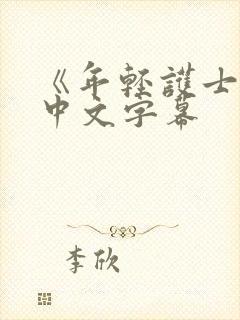 《年轻護士
中文字幕
李欣